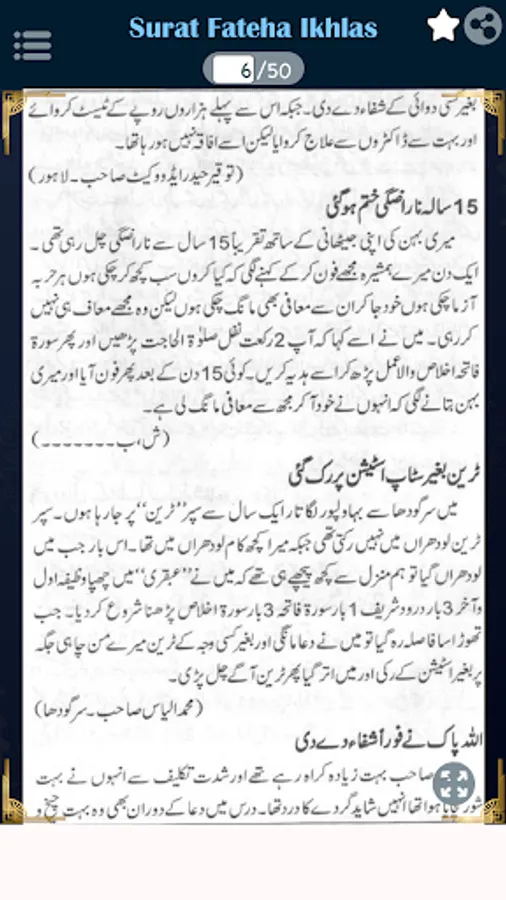 Surat Fateha Ikhlas
6/50
بغیر کسی دوائی کے شفاء دے دی۔ جبکہ اس سے پہلے ہزاروں روپے کے ٹیسٹ کروائے
اور بہت سے ڈاکٹروں سے علاج کروایا لیکن اسے افاقہ نہیں ہو رہا تھا۔
(توقیر حیدر ایڈووکیٹ صاحب۔ لاہور)
15 سالہ ناراضگی ختم ہوگئی
میری بہن کی اپنی جیٹھانی کے ساتھ تقریباً 15 سال سے ناراضگی چل رہی تھی۔
ایک دن میرے ہمشیرہ مجھے فون کرکے کہنے لگی کہ کیا کروں سب کچھ کر چکی ہوں ہر حربہ
آزما چکی ہوں خود جا کر ان سے معافی بھی مانگ چکی ہوں لیکن وہ مجھے معاف ہی نہیں
کر رہی۔ میں نے اسے کہا کہ آپ 2 رکعت نفل صلوٰۃ الحاجت پڑھیں اور پھر سورۃ
فاتحہ اخلاص والا عمل پڑھ کر اسے ہدیہ کریں۔ کوئی 15 دن کے بعد پھر فون آیا اور میری
بہن بتانے لگی کہ انہوں نے خود آ کر مجھ سے معافی مانگ لی ہے۔
(ش،ب۔۔۔۔۔۔۔۔)
ٹرین بغیر سٹاپ اسٹیشن پر رک گئی
میں سرگودھا سے بہاولپور لگا تار ایک سال سے سپر ”ٹرین“ پر جا رہا ہوں۔ سپر
ٹرین لودھراں میں نہیں رکتی تھی جبکہ میرا کچھ کام لودھراں میں تھا۔ اس بار جب میں
لودھراں گیا تو ہم منزل سے کچھ پیچھے ہی تھے کہ میں نے ”عبقری“ میں چھپا وظیفہ اول
و آخر 3 بار درود شریف 1 بار سورۃ فاتحہ 3 بار سورۃ اخلاص پڑھنا شروع کر دیا۔ جب
تھوڑا سا فاصلہ رہ گیا تو میں نے دعا مانگی اور بغیر کسی وجہ کے ٹرین میرے من چاہی جگہ
پر بغیر اسٹیشن کے رکی اور میں اتر گیا پھر ٹرین آگے چل پڑی۔
(محمد الیاس صاحب۔ سرگودھا)
اللہ پاک نے فوراً شفاء دے دی
صاحب بہت زیادہ کراہ رہے تھے اور شدت تکلیف سے انہوں نے بہت
شور ہوا تھا انہیں شاید گردے کا درد تھا۔ درس میں دعا کے دوران بھی وہ بہت چیخ و